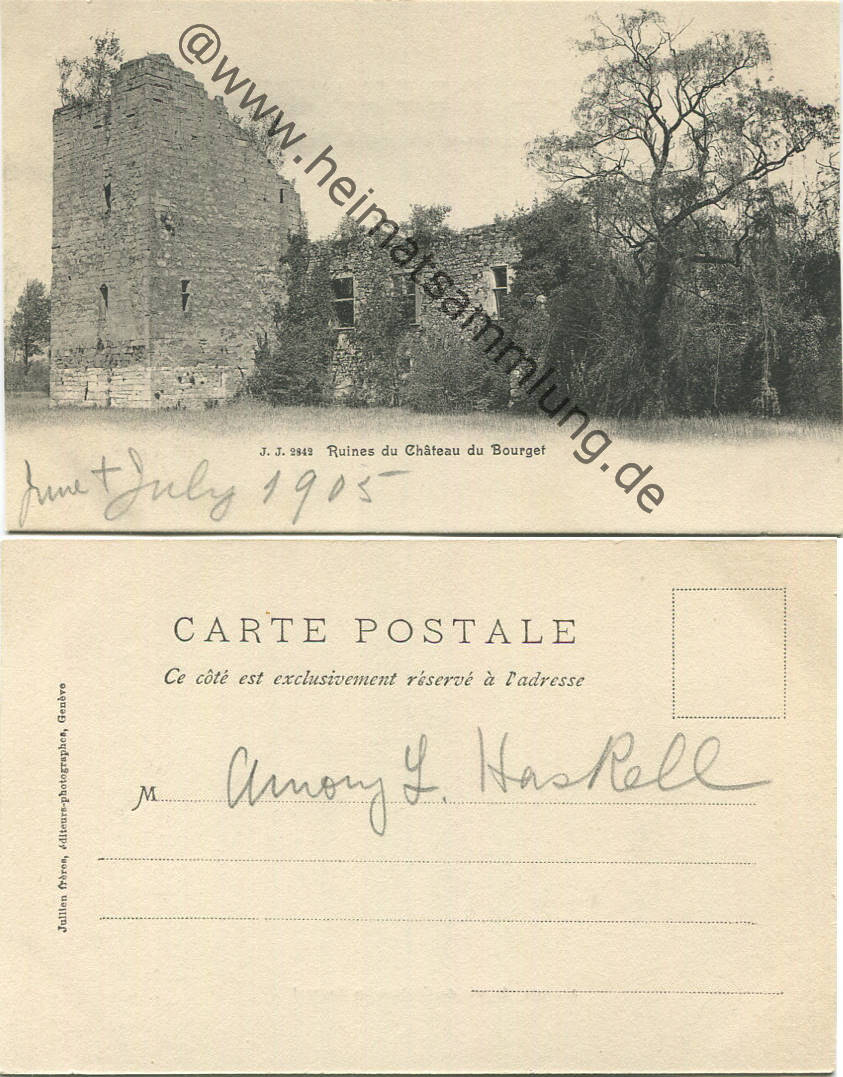 @www.heimatsammlung.de
J. J. 2842 Ruines du Château du Bourget
June + July 1905
CARTE POSTALE
Ce côté est exclusivement réservé à l'adresse
Jullien frères, éditeurs-photographes, Genève
M Amory L. Haskell